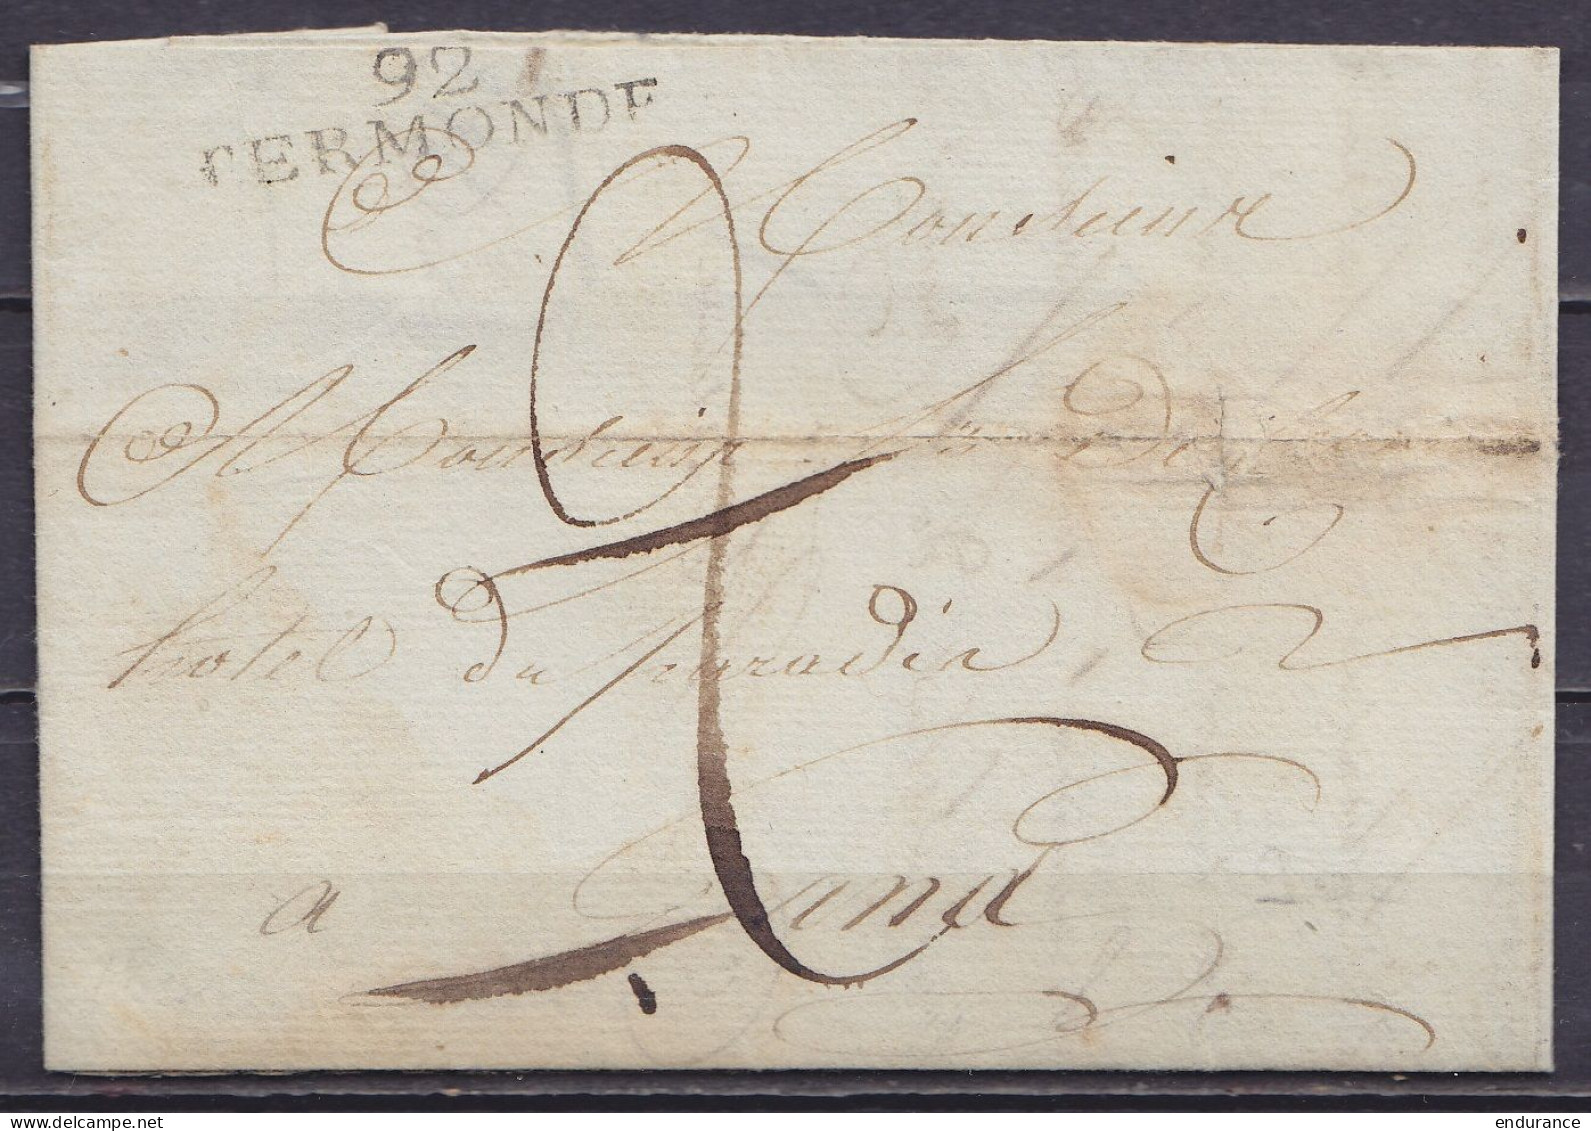 92
TERMONDE
Monsieur
Monsieur
hotel du paradis
2
a Gand
endurance